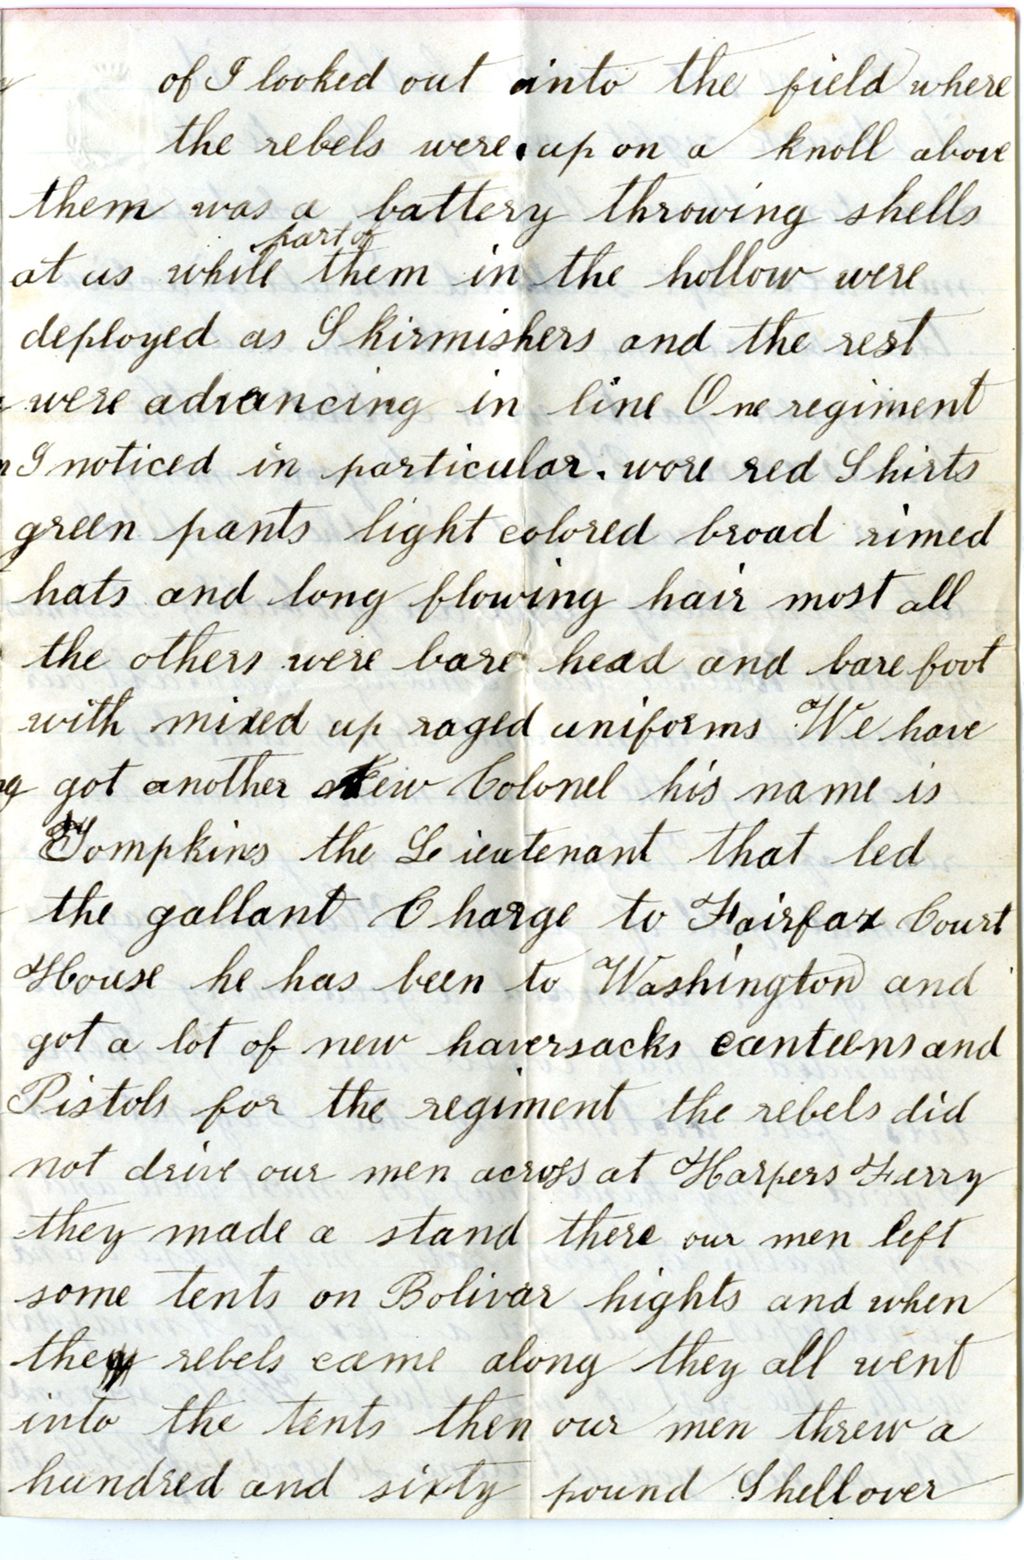 of I looked out into the field where
the rebels were. up on a knoll above
them was a battery throwing shells
part of
at us while them in the hollow were
deployed as Skirmishers and the rest
were advancing in line One regiment
I noticed in particular. wore red Shirts
green pants light colored broad rimed
hats and long flowing hair most all
the others were bare head and bare foot
with mixed up raged uniforms We have
got another New Colonel his name is
Tompkins the Lieutenant that led
the gallant Charge to Fairfax Court
House he has been to Washington and
got a lot of new haversacks canteens and
Pistols for the regiment the rebels did
not drive our men across at Harpers Ferry
they made a stand there our men left
some tents on Bolivar hights and when
the rebels came along they all went
into the tents then our men threw a
hundred and sixty pound Shell over